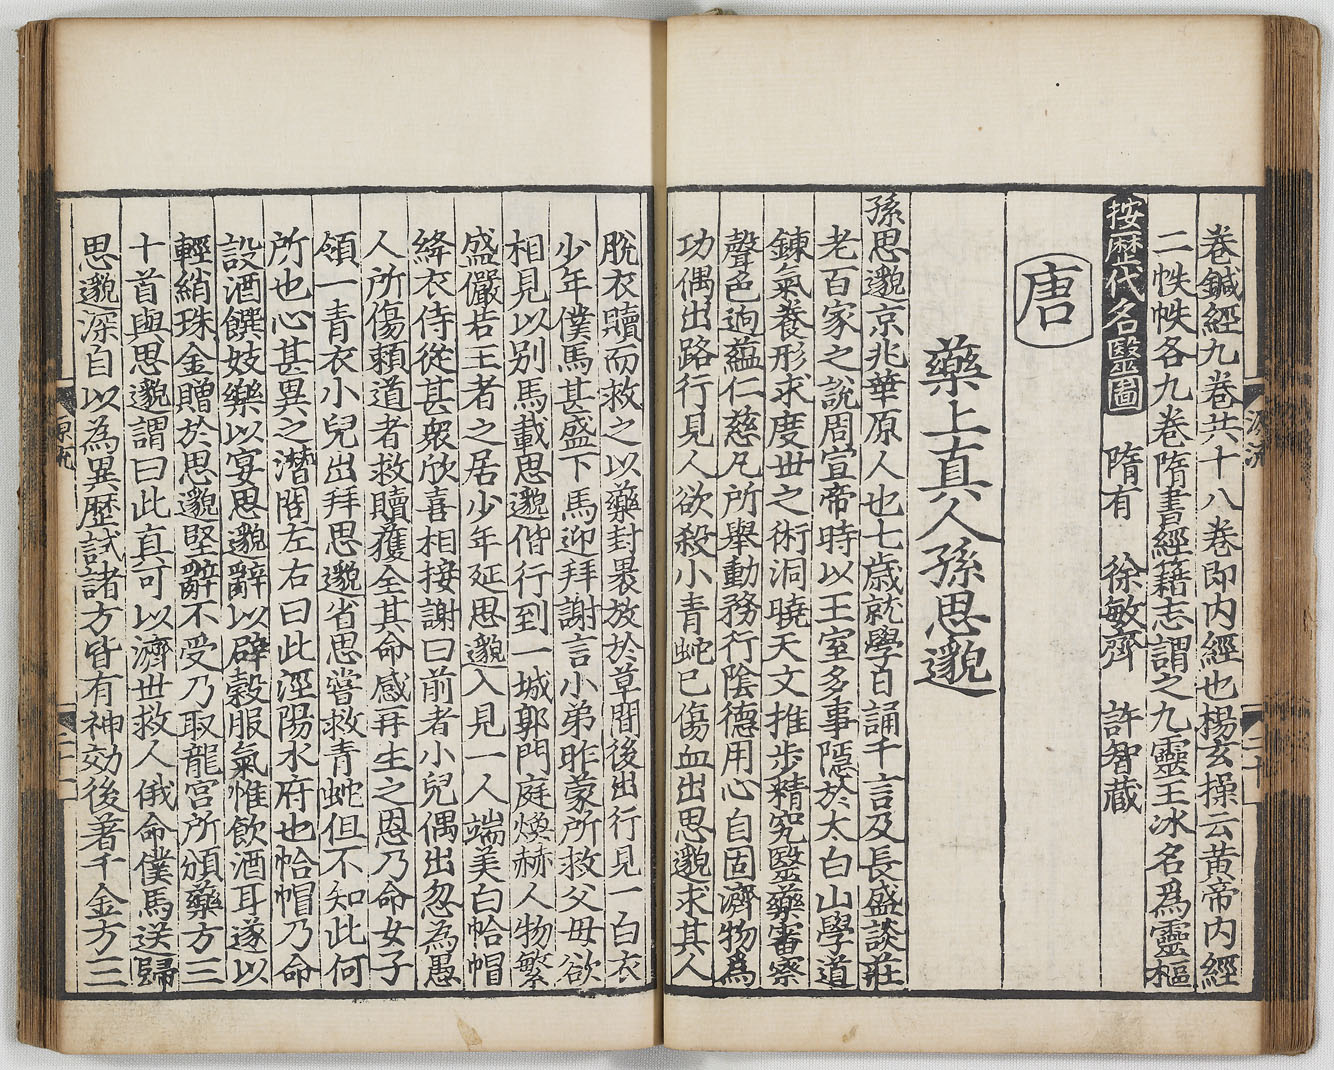 卷鍼經九卷共十八卷即内經也楊玄操云黃帝内經
二帙帙各九卷隋書經籍志謂之九靈王冰名爲靈樞
按歷代名毉啚 隋有 徐敏齊 許智蔵
唐
藥上真人孫思邈
孫思邈京兆華原人也七歳就學日誦千言及長盛談莊
老百家之說周宣帝時以王室多事隱於太白山學道
鍊氣養形求度世之術洞曉天文推步精究毉藥審察
聲色逈蘊仁慈凡所舉動務行陰德用心自固濟物爲
功偶出路行見人欲殺小青蛇已傷血出思邈求其人
脫衣贖而救之以藥封裹放於草間後出行見一白衣
少年僕馬甚盛下馬迎拜謝言小弟昨蒙所救父母欲
相見以別馬載思邈偕行到一城郭門庭煥赫人物繁
盛儼若王者之居少年延思邈入見一人端美白帢帽
絳衣侍從甚衆欣喜相接謝曰前者小兒偶出忽為愚
人所傷頼道者救贖獲全其命感再生之恩乃命女子
領一青衣小兒出拜思邈省思嘗救青蛇但不知此何
所也心甚異之潛問左右曰此涇陽水府也帢帽乃命
設酒饌妓樂以宴思邈辭以辟糓服氣惟飲酒耳遂以
輕綃珠金贈於思邈堅辭不受乃取龍宮所頒藥方三
十首與思邈謂曰此真可以濟世救人俄命僕馬送歸
思邈深自以為異歷試諸方皆有神効後著千金方三